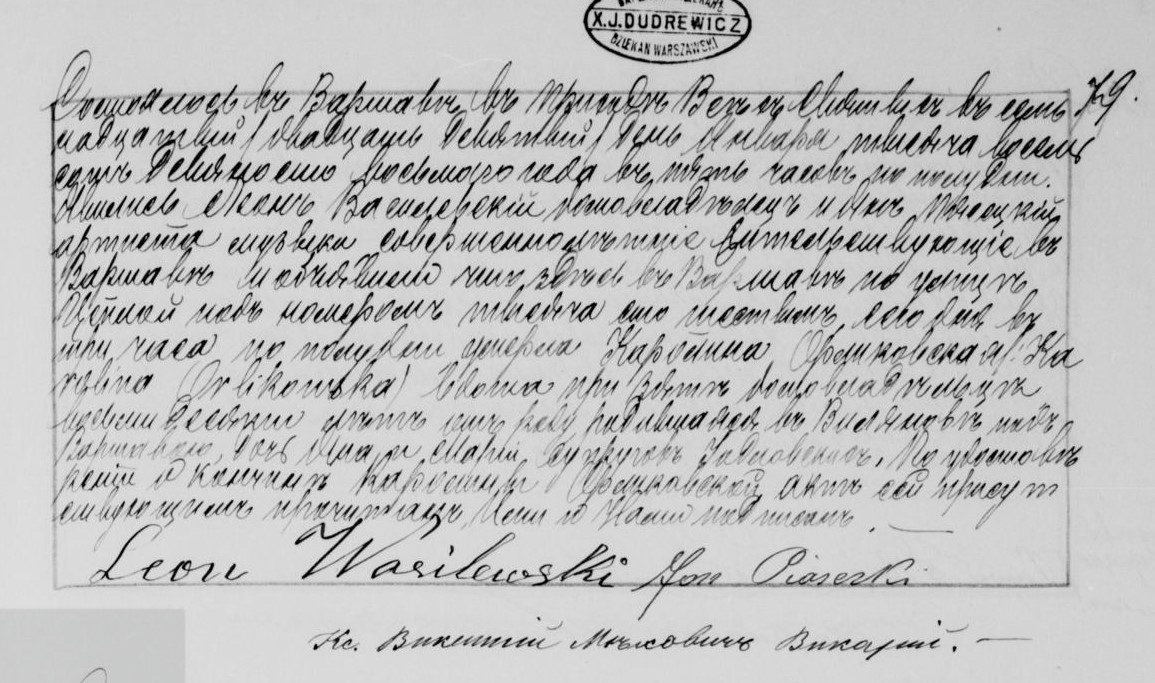 X.J.DUDREWICZ
DZIEKAN WARSZAWSKI
79.
Состоялось въ Варшавѣ, въ приходѣ Всѣхъ Святыхъ въ сем
надцатый / двадцать девятый / день Января тысяча восемь
сотъ девяносто восьмого года въ пять часовъ по полудни.
Явились Леонъ Василевскій домовладѣлецъ и Янъ Пясецкій
артиста музыка совершеннолѣтніе жительствующіе въ
Варшавѣ и объявили что здѣсь въ Варшавѣ по улицѣ
подъ номеромъ тысяча сто шестымъ, сего дня въ
три часа по полудни умерла Каролина Орликовская /: Ka
rolina Orlikowska) вдова при зятѣ домовладѣльцѣ
восьмидесяти лѣтъ отъ роду родившаяся въ Виляновѣ подъ
Варшавою, дочь Яна и Маріи супруговъ По удостовѣ
реніи о кончинѣ Каролины Орликовской, актъ сей присут
ствующимъ прочитанъ, Ими и Нами подписанъ.
Leon Wasilewski Jan Piasecki
Кс. Викентій Викарій. —